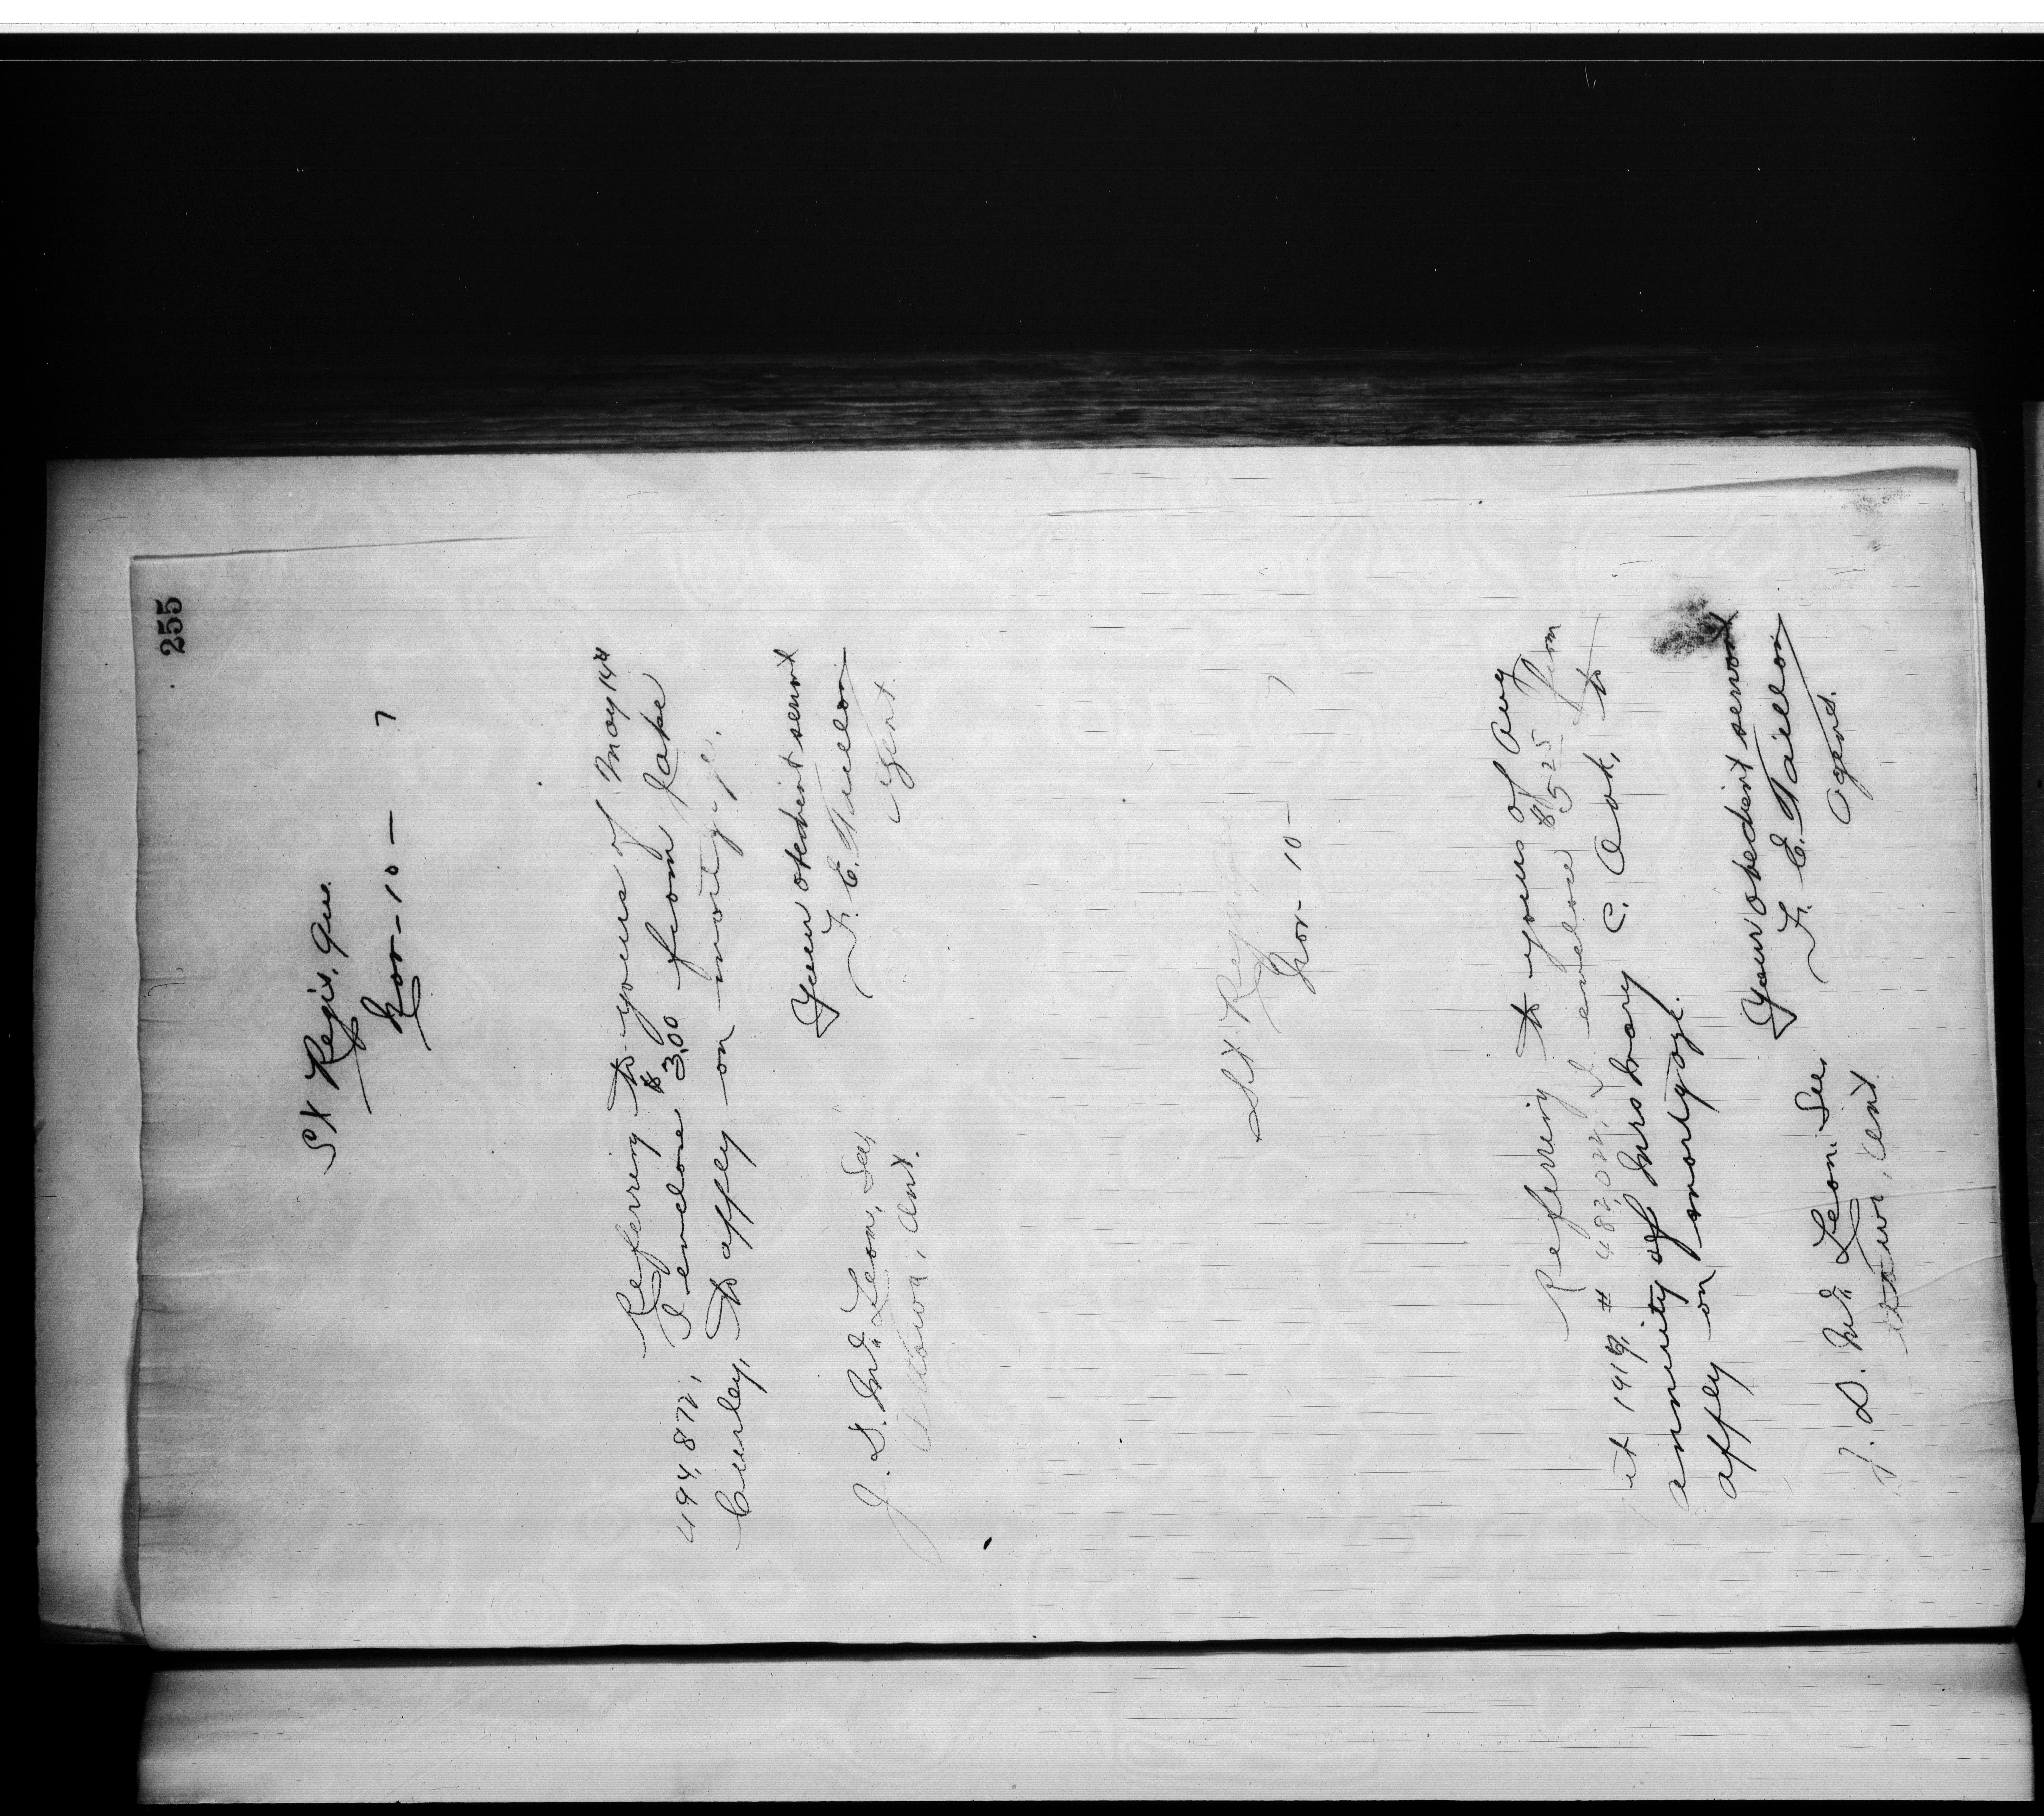 255
St Regis. Que.
Nov - 10 - 7
Referring to yours of May 14th
494,872, I enclose $3.00 from Jake
Curley, to apply on mortgage.
Your obedient servant
F. E. Taillon
Agent.
J. D. McLean, Sec,
Ottawa, Ont.
St Regis
Nov - 10 - 7
Referring to yours of Aug
1st 1919, # 482,022, I enclose $5 25 from
annuity of Mrs Mary C. Cook, to
apply on mortgage.
Your obedient servant
F. E. Taillon
Agent.
J. D. McLean Sec,
Ottawa, Ont